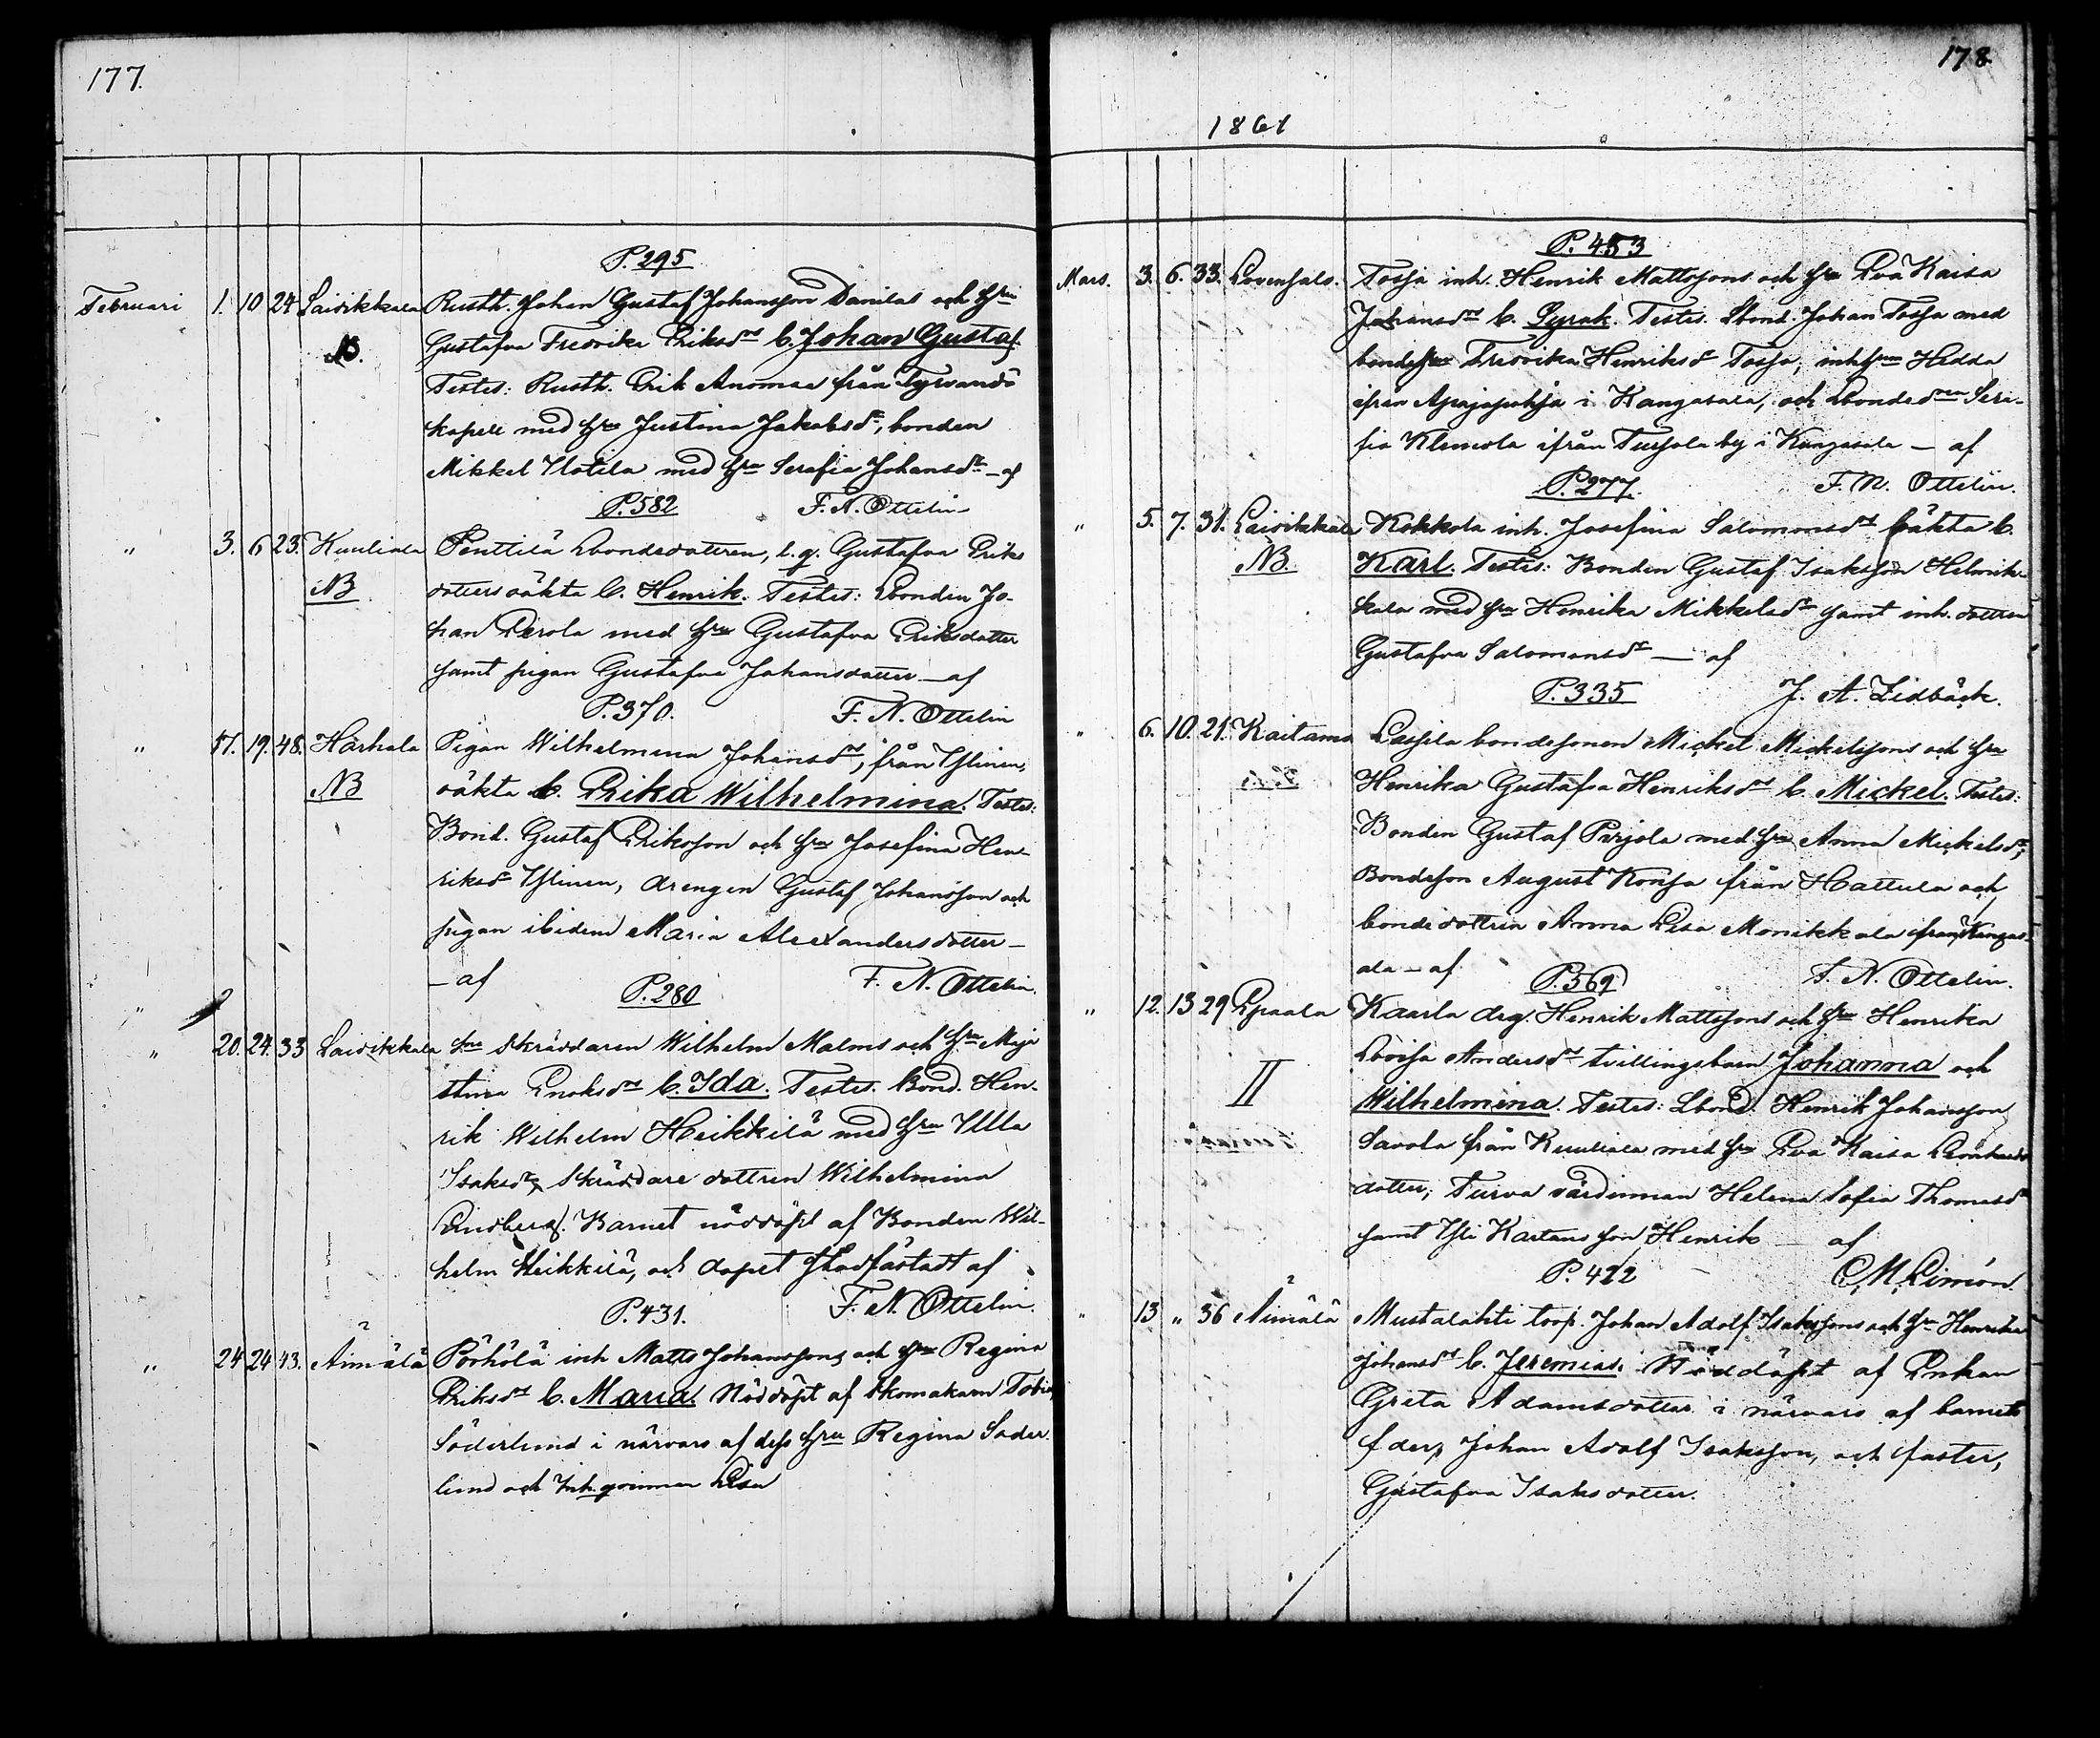 177.
P. 295
Februari 1. 10 24 Laivikkala Rusth. Johan Gustaf Johansson Danilas och hru
NB. Gustafva Fredrika Eriksdr b. Johan Gustaf.
Testes: Rusth. Erik Anomaa från Tyrvändö
kapell med hru Justina Jakobsdr, bonden
Mikkel Ylotila med hru Serafia Johansdr – af
P. 582 F. N. Ottelin
" 3. 6 23. Kuuliala Penttilä Lbondedottren, l. q. Gustafva Eriks
NB. dotters oäkta b. Henrik. Testes: Lbonden Jo-
han Perola med hru Gustafva Eriksdotter
samt pigan Gustafva Johansdotter – af
P. 370. F. N. Ottelin
" 17. 19. 48. Härhala Pigan Wilhelmina Johansdrs, från Yflinen,
NB oäkta b. Erika Wilhelmina. Testes:
Bond. Gustaf Eriksson och hru Josefina Hen-
riksdr Yflinen, drengen Gustaf Johansson och
pigan ibidem Maria Alexandersdotter –
– af F. N. Ottelin.
P. 280
" 20. 24. 33 Laivikkala Skräddaren Wilhelm Malms och hru Maja
Stina Enoksdrs b. Ida. Testes. Bond. Hen-
rik Wilhelm Heikkilä med hru Ulla
Isaksdr, Skräddare dottren Wilhelmina
Lindberg. Barnet nöddöpt af Bonden Wil-
helm Heikkilä, och dopet stadfästadt af
P. 431. F. N. Ottelin.
" 24 24 43. Äimälä Pörhölä inh Matts Johanssons och hru Regina
Eriksdrs b. Maria. Nöddöpt af Skomakarn Tobias
Söderlund i närvaro af dess hru Regina Söder
lund och Inh. qvinnan Lisa
178
1861
P. 453
Mars. 3. 6. 33. Tossa inh. Henrik Mattssons och hru Eva Kaisa
Johansdrs b. Syrak. Testes. Lbond. Johan Tossa med
bondehru Fredrika Henriksdr Tossa, inh hrun Hedda
ifrån Apajapohja i Kangasala, och Lbondedren Sera-
fia Klemola ifrån Tursola by i Kangasala – af
P. 277. F. N. Ottelin.
" 5. 7. 31. Laivikkala Kokkola inh. Josefina Salomonsdrs oäkta b.
NB. Karl. Testes: Bonden Gustaf Isaksson
med hru Henrika Mikkelsdr samt inh. dottren
Gustafva Salomonsdr – af
P. 335 J. A. Lidbäck.
" 6. 10. 21. Kaitamo Lassila bondesonen Mickel Mickelssons och hru
Henrika Gustafva Henriksdrs b. Mickel. Testes:
Bonden Gustaf Parjola med hru Anna Mickelsdr;
Bondeson August Konsa från Hattula och
bondedottren Anna Lisa Monikkala från Kangas-
ala – af P. 569 F. N. Ottelin.
" 12. 13 29 Epaala Kaarla drg. Henrik Mattssons och hru Henrika
II Lovisa Andersdrs tvillingsbarn Johanna och
Wilhelmina. Testes: Lbond. Henrik Johansson
Savola från Kuuliala med hru Eva Kaisa
dotter; Turva värdinnan Helena Sofia Thomasdr
samt Yli Kartano son Henrik – af
P. 422 C. M. Limón.
" 13 " 36 Äimälä Mustalahti torp. Johan Adolf Isakssons och hru Henrika
Johansdrs b. Jeremias. Nöddöpt af Enkan
Greta Adamsdotter i närvaro af barnets
fder, Johan Adolf Isaksson, och faster,
Gustafva Isaksdotter.